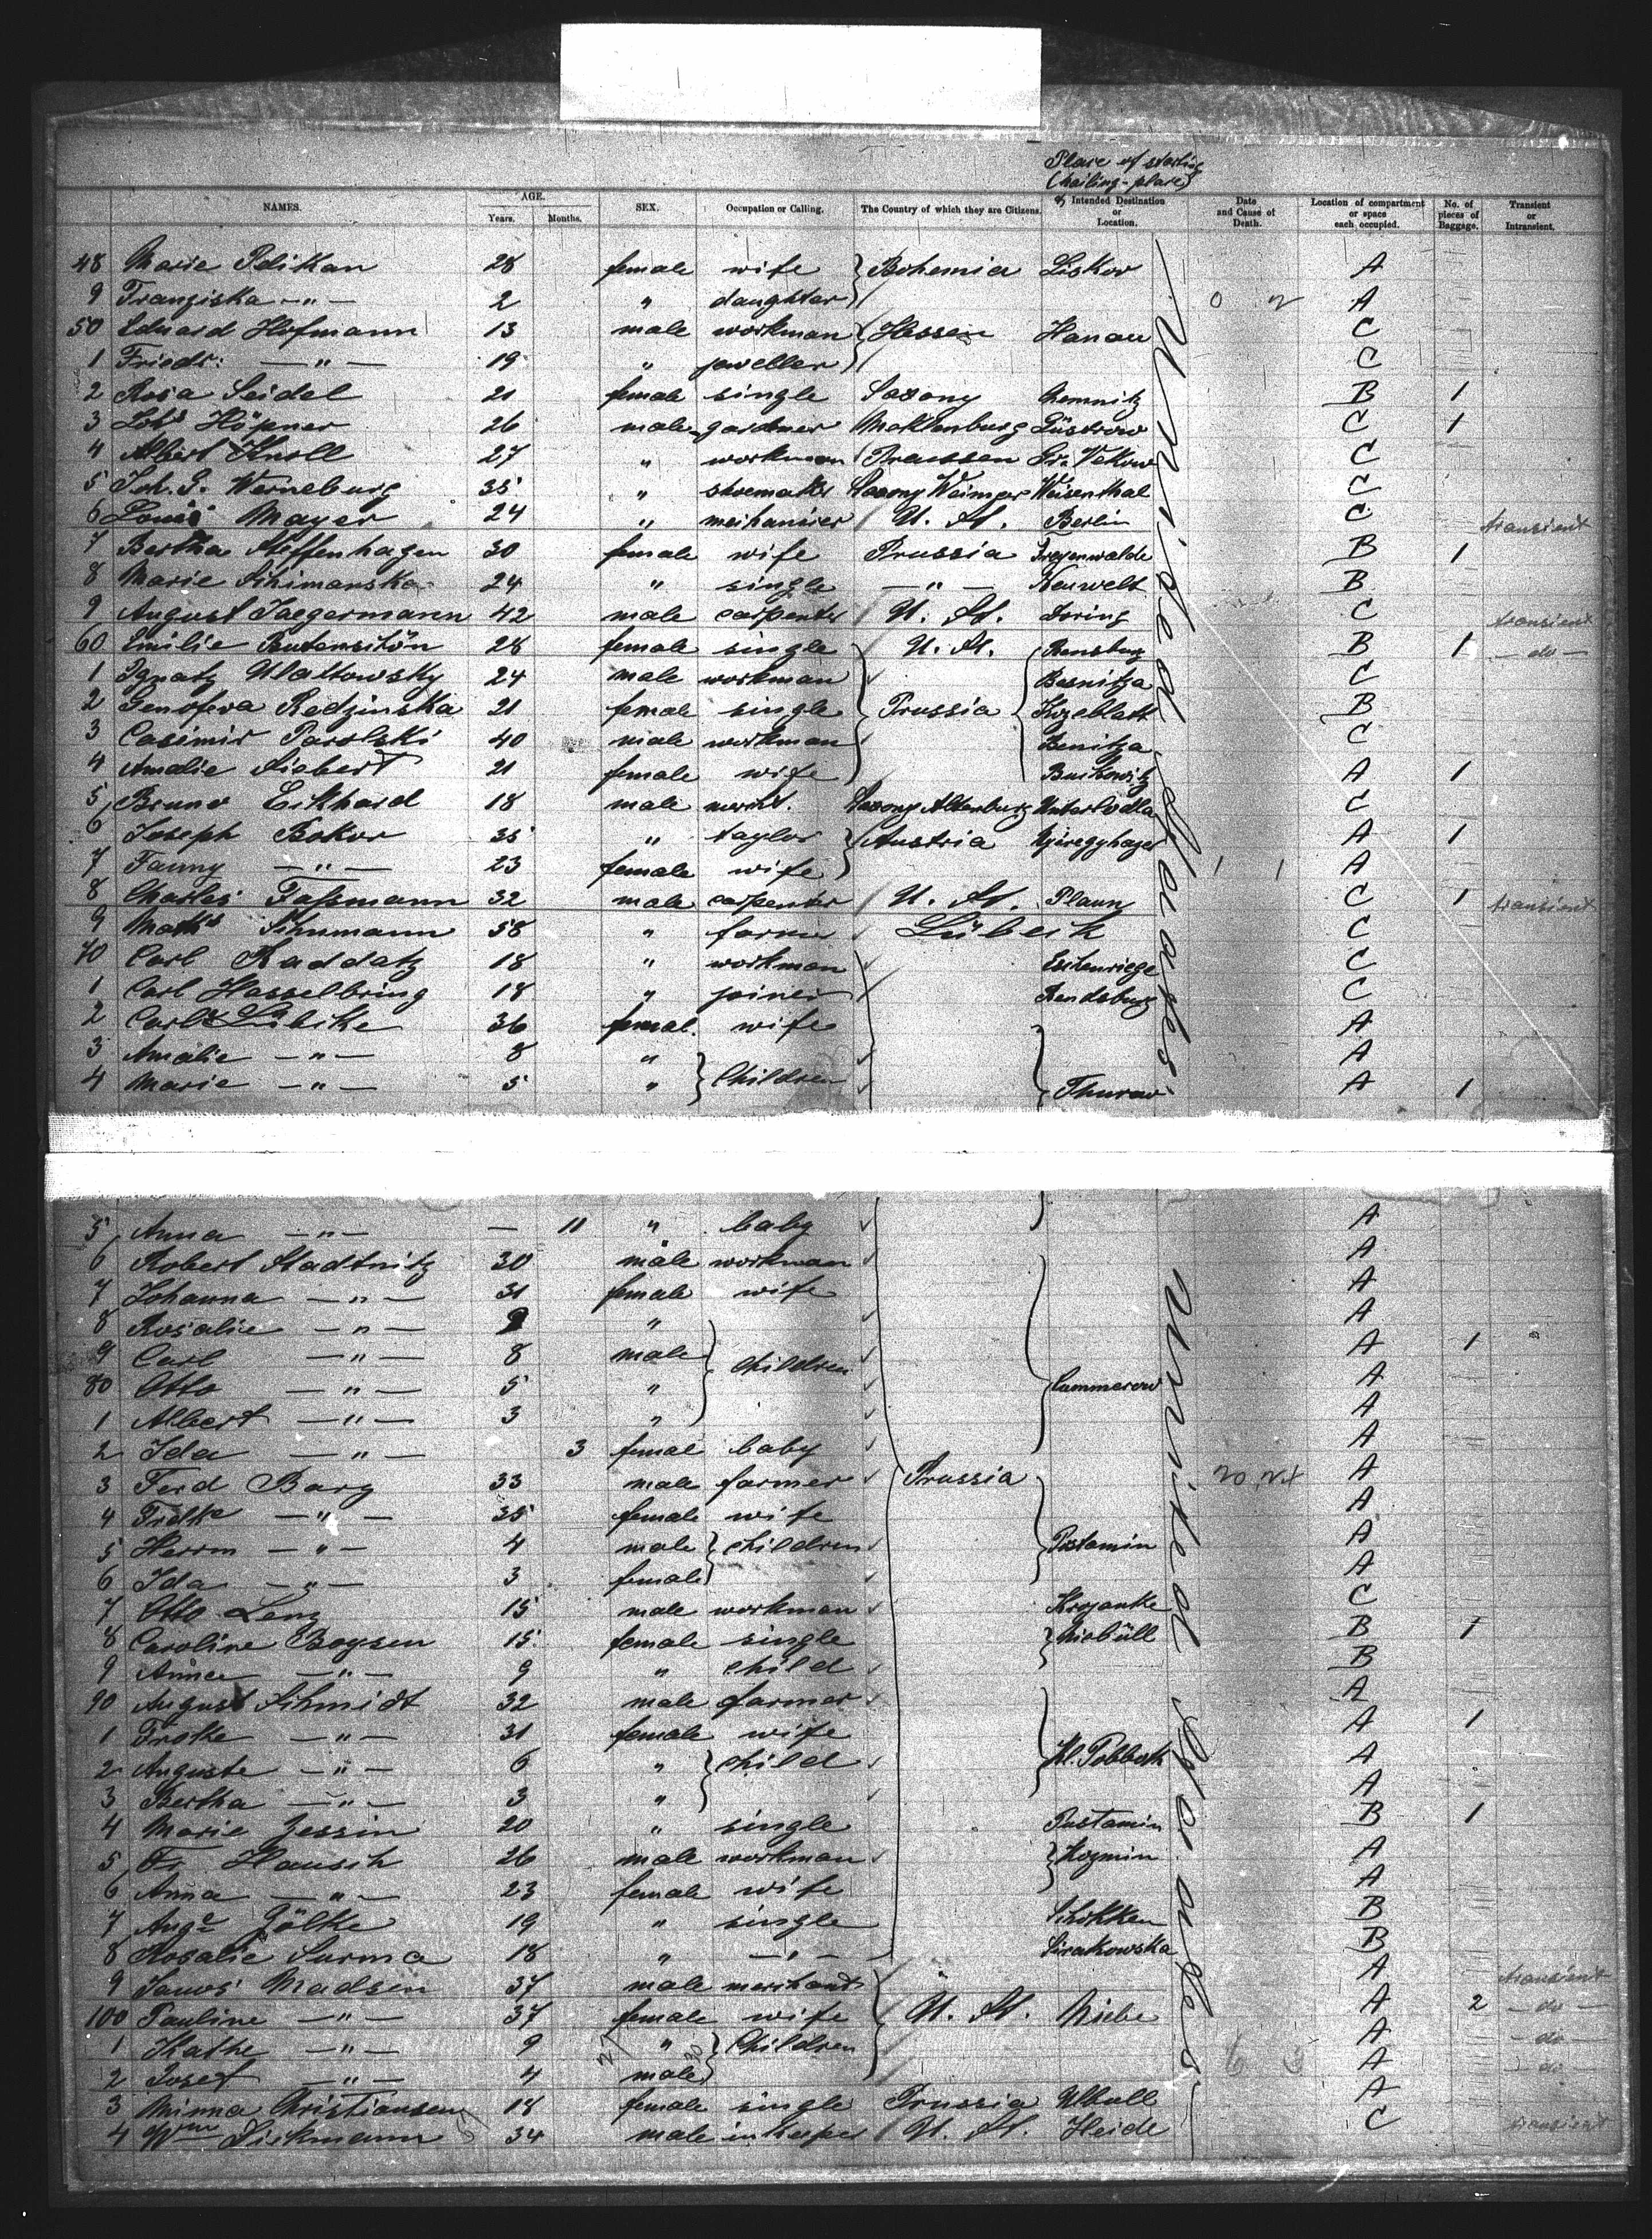 Place of starting
(hailing-place)
NAMES. AGE. Years. Months. SEX. Occupation or Calling. The Country of which they are Citizens. of Intended Destination or Location. Date and Cause of Death. Location of compartment or space each occupied. No. of pieces of Baggage. Transient or Intransient.
48 Marie Pelikan 28 female wife Bohemia Liskov A
9 Franziska —"— 2 " daughter A
50 Eduard Hofmann 13 male workman Hessen Hanau C
1 Friedr: —"— 19 " jeweller C
2 Rosa Seidel 21 female single Saxony Chemnitz B 1
3 Höpner 26 male gardner Meklenburg Güstrow C 1
4 Albert Knoll 27 " workman Preussen Gr. Vekow C
5 Joh. G. Werneburg 35 " shoemaker Saxony Weimar Weisenthal C
6 Louis Mayer 24 " mechanicer U. St. Berlin C transient
7 Bertha Steffenhagen 30 female wife Prussia Freyenwalde B 1
8 Marie Schimanska 24 " single —"— Neuwelt B
9 August Jaegermann 42 male carpenter U. St. Doring C transient
60 Emilie Butenschön 28 female single U. St. Rensburg B 1 —do—
1 Ignatz Ulatowsky 24 male workman Besnitza C
2 Genofeva Redzinska 21 female single Prussia B
3 Casimir Parolski 40 male workman Benitza C
4 Amalie Siebert 21 female wife Buckowitz A 1
5 Bruno Eckhard 18 male mercht. Saxony Altenburg Unterlodla C
6 Joseph Bokor 35 " taylor Austria Nyiregyhazer A 1
7 Fanny —"— 23 female wife 1 1 A
8 Charles Fassmann 32 male carpenter U. St. Plauny C 1 transient
9 Maths Schumann 58 " farmer Lübeck C
70 Carl Raddatz 18 " workman Eschenriege C
1 Carl Hasselbring 18 " joiner Rendsburg C
2 Lübcke 36 femal. wife A
3 Amalie —"— 8 " A
4 Marie —"— 5 " Children Thurow A 1
United States
5 Anna —"— — 11 " baby A
6 Robert Stadtnitz 30 male workman A
7 Johanna —"— 31 female wife A
8 Rosalie —"— 9 " A
9 Carl —"— 8 male children A 1
80 Otto —"— 5 " Cummerow A
1 Albert —"— 3 " A
2 Ida —"— 3 femal baby A
3 Ferd Barg 33 male farmer Prussia A
4 Fredke —"— 35 female wife A
5 Herrm —"— 4 male children Pustamin A
6 Ida —"— 3 female A
7 Otto Lenz 15 male workman Krojanke C
8 Caroline Boysen 15 female single Niebüll B 1
9 Anna —"— 9 " child B
90 August Schmidt 32 male farmer A
1 Fredke —"— 31 female wife A 1
2 Auguste —"— 6 " child Kl. Pobloth A
3 Bertha —"— 3 " A
4 Marie Jessin 20 " single Pustamin B 1
5 Fr. Hausch 26 male workman Kozmin A
6 Anna —"— 23 female wife A
7 Auge Gölke 19 " single Schokken B
8 Rosalie Surma 18 " —"— Sirakowska B
9 Madsen 37 male merchant A transient
100 Pauline —"— 37 female wife U. St. Niebe A 2 —do—
1 Kathe —"— 9 " Children A —do—
2 Josef —"— 4 male A —do—
3 Minna Christiansen 18 female single Prussia Uball A
4 Wm Dickmann 34 male inkeeper U. St. Heide C transient
United States